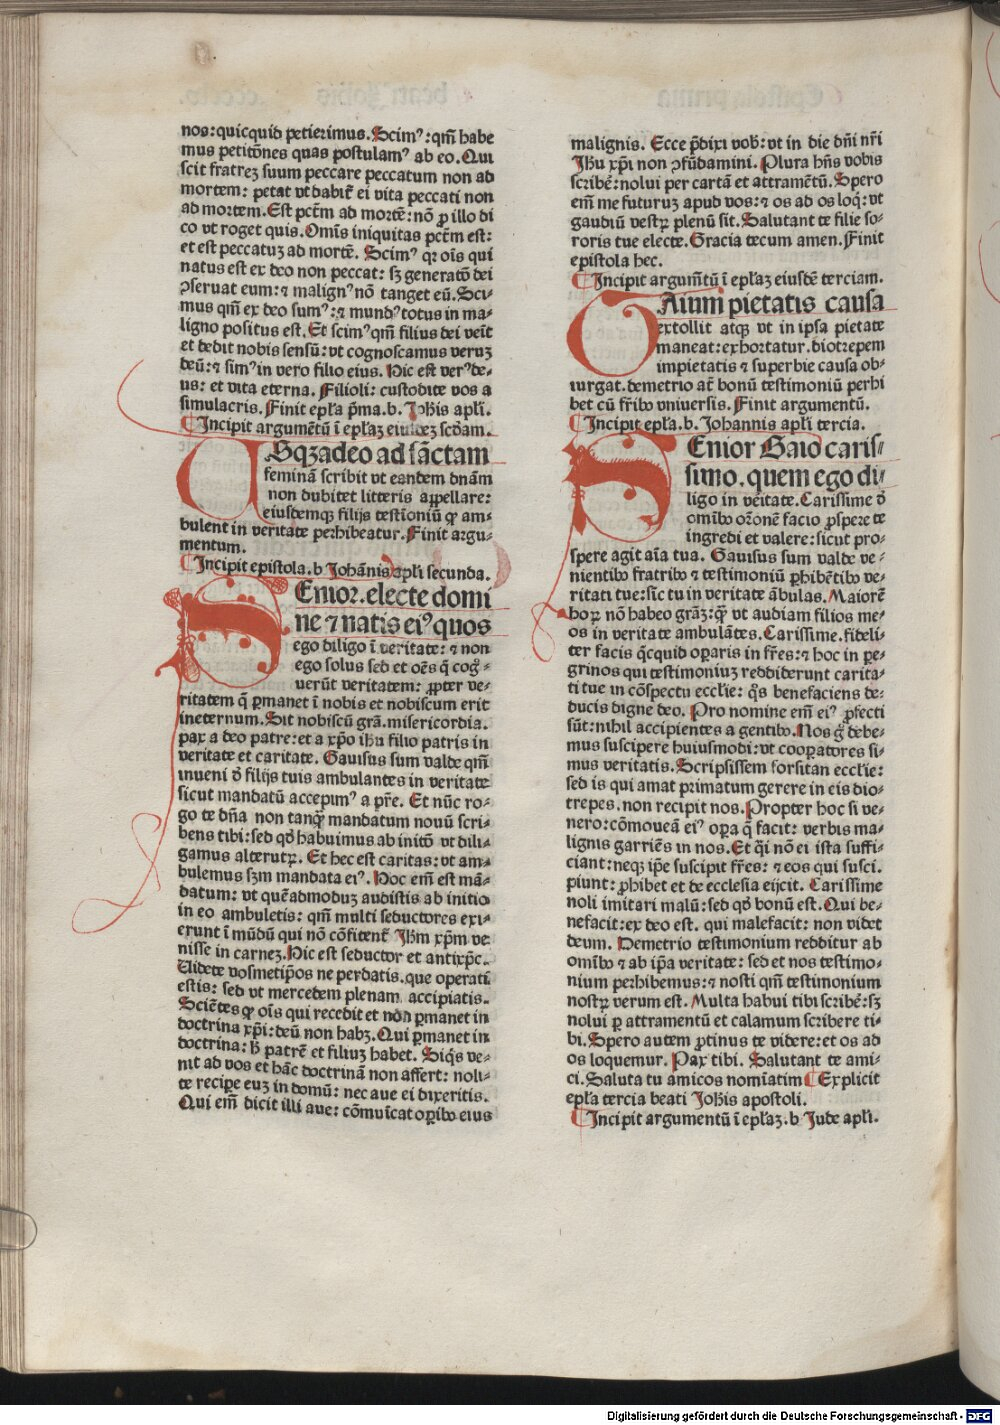 nos:quicquid petierimus. Scimꝰ: qm̄ habe
mus petitōnes quas postulamꝰ ab eo. Qui
scit fratreꝫ suum peccare peccatum non ad
mortem: petat ⁊ dabit̄ ei vita peccati non
ad mortem. Est pctm̄ ad mortē: nō ꝓ illo di
co vt roget quis. Omīs iniquitas pctm̄ est:
et est peccatuꝫ ad mortē. Scimꝰ qꝛ oīs qui
natus est ex deo non peccat: sꝫ generatō dei
ꝯseruat eum: ⁊ malignꝰ nō tanget eū. Sci⸗
mus qm̄ ex deo sumꝰ: ⁊ mundꝰ totus in ma⸗
ligno positus est. Et scimꝰ qm̄ filius dei veīt
et dedit nobis sensū: vt cognoscamus veruꝫ
deū: ⁊ simꝰ in vero filio eius. Hic est verꝰ de⸗
us: et vita eterna. Filioli: custodite vos a
simulacris. Finit epl̄a p̄ma. b. Joh̄is apl̄i.
Incipit argumētū ī epl̄aꝫ eiusdeꝫ scd̄am.
USqꝫadeo ad sāctam
feminā scribit vt eandem dnām
non dubitet litteris appellare:
eiusdemqꝫ filijs testīoniū qꝙ am⸗
bulent in veritate perhibeatur. Finit argu⸗
mentum.
Incipit epistola. b Johānis apl̄i secunda.
SEnior. electe domi
ne ⁊ natis eiꝰ quos
ego diligo ī veritate: ⁊ non
ego solus sed et oēs q̄ cog⸗
uerūt veritatem: ꝓpter ve⸗
ritatem q̄ ꝑmanet ī nobis et nobiscum erit
ineternum. Sit nobiscū grā. misericordia.
pax a deo patre: et a xp̄o ih̄u filio patris in
veritate et caritate. Gauisus sum valde qm̄
inueni ō filijs tuis ambulantes in veritate
sicut mandatū accepimꝰ a p̄re. Et nūc ro⸗
go te dn̄a non tanqꝫ mandatum nouū scri⸗
bens tibi: sed qd̄ habuimus ab initō vt dili⸗
gamus alterutꝝ. Et hec est caritas: vt am⸗
bulemus sꝫm mandata eiꝰ. Hoc em̄ est mā⸗
datum: vt quēadmoduꝫ audistis ab initio
in eo ambuletis: qm̄ multi seductores exi⸗
erunt ī mūdū qui nō cōfitent̄ Jh̄m xp̄m ve
nisse in carneꝫ. Hic est seductor et antixp̄c.
Uidete vosmetip̄os ne perdatis. que operati
estis: sed vt mercedem plenam accipiatis.
Sciētes qꝙ oīs qui recedit et non ꝑmanet in
doctrina xp̄i: deū non habꝫ. Qui ꝑmanet in
doctrina: h̄ patrē et filiuꝫ habet. Siq̄s ve⸗
nit ad vos et hāc doctrinā non affert: noli⸗
te recipe euꝫ in domū: nec aue ei dixeritis.
Qui em̄ dicit illi aue: cōmuīcat oꝑibꝰ eius
malignis. Ecce p̄dixi vob̄: vt in die dn̄i nr̄i
Jh̄u xp̄i non ꝯfūdamini. Plura hn̄s vobis
scribē: nolui per cartā et attramētū. Spero
em̄ me futuruꝫ apud vos: ⁊ os ad os loq̄: vt
gaudiū vestꝝ plenū sit. Salutant te filie so⸗
roris tue electe. Gracia tecum amen. Finit
epistola hec.
Incipit argum̄tū ī epl̄aꝫ eiusdē terciam.
GAium pietatis causa
extollit atqꝫ vt in ipsa pietate
maneat: exhortatur. diotrepem
impietatis ⁊ superbie causa ob⸗
iurgat. demetrio at̄ bonū testimoniū perhi
bet cū fr̄ibꝰ vniuersis. Finit argumentū.
Incipit epl̄a. b. Johannis apl̄i tercia.
SEnior Gaio caris⸗
simo. quem ego di⸗
ligo in v̄eitate. Carissime ō
omībꝰ or̄onē facio ꝓspere te
ingredi et valere: sicut pro⸗
spere agit aīa tua. Gauisus sum valde ve⸗
nientibꝰ fratribꝰ ⁊ testimoniū ꝑhibētibꝰ ve⸗
ritati tue: sic tu in veritate ābulas. Maiorē
hoꝝ nō habeo grāꝫ: qꝫ vt audiam filios me⸗
os in veritate ambulātes. Carissime. fideli⸗
ter facis q̄cquid oꝑaris in fr̄es: ⁊ hoc in ꝑe⸗
grinos qui testimoniuꝫ reddiderunt carita⸗
ti tue in cōspectu eccl̄ie: q̄s benefaciens de⸗
ducis digne deo. Pro nomine em̄ eiꝰ ꝓfecti
sūt: nihil accipientes a gentibꝰ. Nos g̊ debe⸗
mus suscipere huiusmodi: vt cooꝑatores si⸗
mus veritatis. Scripsissem forsitan eccl̄ie:
sed is qui amat primatum gerere in eis dio⸗
trepes. non recipit nos. Propter hoc si ve⸗
nero: cōmoueā eiꝰ oꝑa q̄ facit: verbis ma⸗
lignis garriēs in nos. Et q̄i nō ei ista suffi⸗
ciant: neqꝫ ip̄e suscipit fr̄es: ⁊ eos qui susci.
piunt: ꝓhibet et de ecclesia eijcit. Carissime
noli imitari malū: sed qd̄ bonū est. Qui be⸗
nefacit: ex deo est. qui malefacit: non videt
deum. Demetrio testimonium redditur ab
omībꝰ ⁊ ab ip̄a veritate: sed et nos testimo⸗
nium perhibemus: ⁊ nosti qm̄ testimonium
nostꝝ verum est. Multa habui tibi scribē: sꝫ
nolui ꝑ attramentū et calamum scribere ti⸗
bi. Spero autem ꝓtinus te videre: et os ad
os loquemur. Pax tibi. Salutant te ami⸗
ci. Saluta tu amicos nomīatim Explicit
epl̄a tercia beati Joh̄is apostoli.
Incipit argumentū ī epl̄aꝫ. b Jude apl̄i.
Digitalisierung gefördert durch die Deutsche Forschungsgemeinschaft - DFG